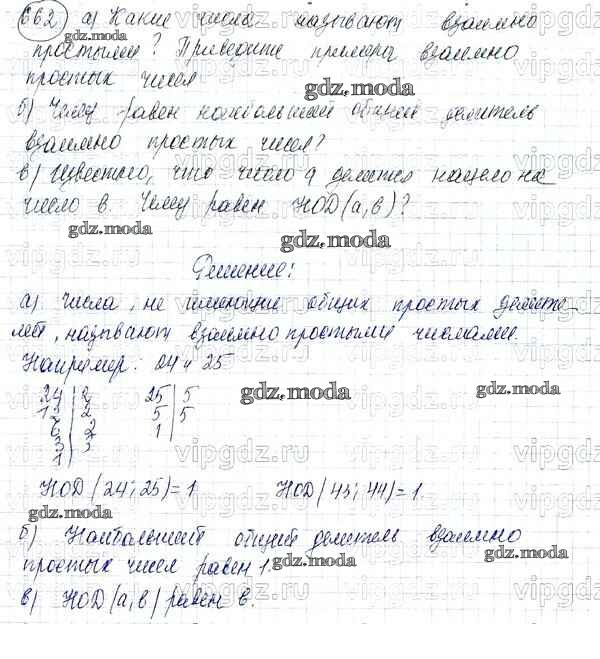 662 а) Какие числа называют взаимно
простыми? Приведите примеры взаимно
простых чисел
б) Чему равен наибольший общий делитель
взаимно простых чисел?
в) Известно, что число а делится нацело на
число в. Чему равен НОД(а,в)?
Решение:
а) Числа, не имеющие общих простых делите-
лей, называют взаимно простыми числами.
Например: 24 и 25
24 | 2 25 | 5
12 | 2 5 | 5
6 | 2 1 |
3 | 3
1 |
НОД(24; 25) = 1 НОД(43; 44) = 1.
б) Наибольший общий делитель взаимно
простых чисел равен 1.
в) НОД(а,в) равен в.
gdz.moda
vipgdz.ru